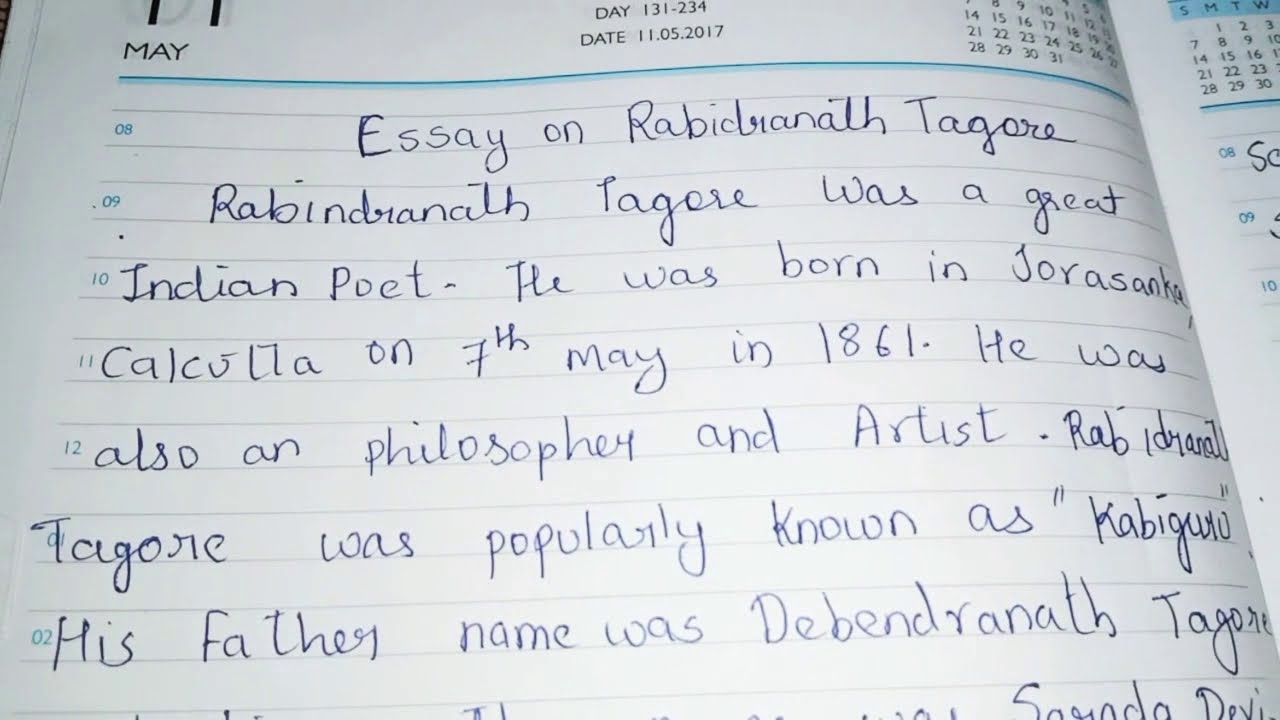 DAY 131-234
MAY
DATE 11.05.2017
14 15 16 17 18 19 20
21 22 23 24 25 26 27
28 29 30 31
S M T W
1 2 3
7 8 9 10
14 15 16
21 22 23
28 29 30
08 Essay on Rabidranath Tagore
09 Rabindranath Tagore was a great
10 Indian Poet. He was born in Jorasanka,
11 Calcutta on 7th may in 1861. He was
12 also an philosopher and Artist. Rabidranath
Tagore was popularly known as "Kabiguru".
02 His Father name was Debendranath Tagore
was Sarada Devi
08 
09
10